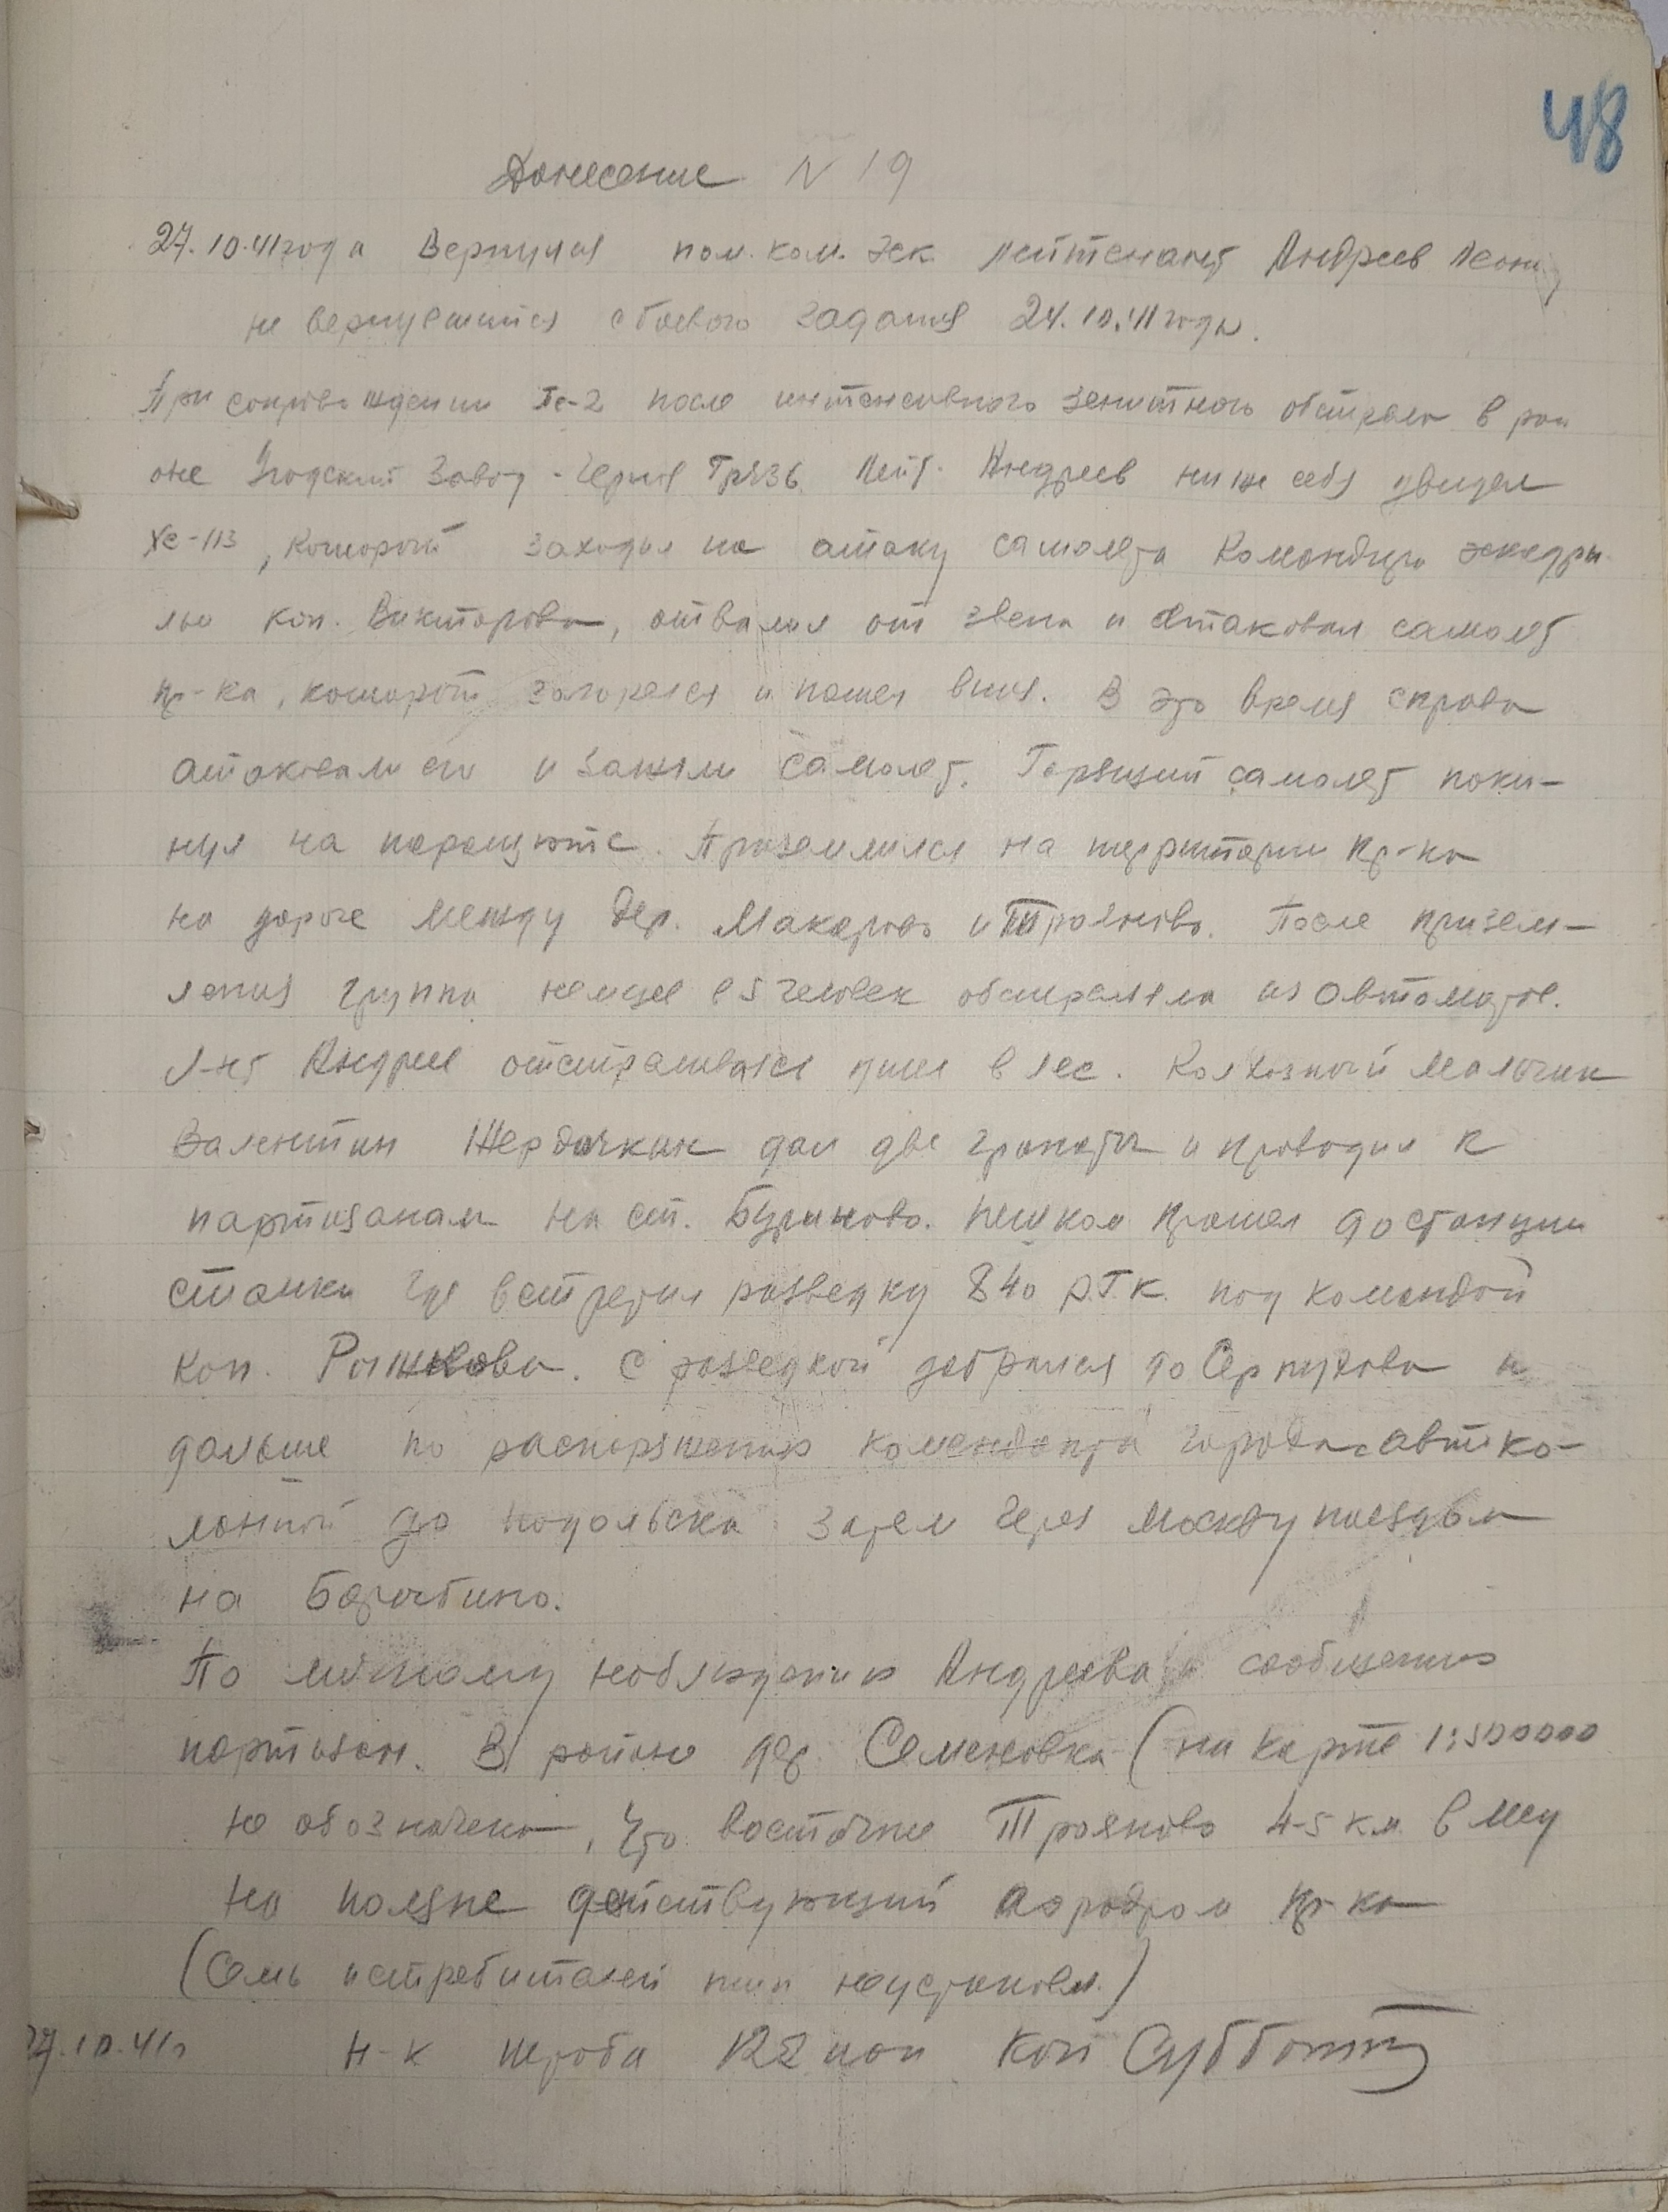 48
Донесение N 19
27.10.41 года Вернулся пом. ком. эск лейтенант Андреев Леони
не вернувшийся с боевого задания 24.10.41 года.
При сопровождении Пе-2 после интенсивного зенитного обстрела в рай
оне Угодский Завод - Черная Грязь Лейт. Андреев ниже себя увидел
Хе-113, который заходил на атаку самолета Командира эскадри
льи кап. Викторова, отвалил от звена и атаковал самолет
пр-ка, который загорелся и пошел вниз. В это время справа
атаковали его и зажгли самолет. Горящий самолет поки-
нул на парашюте. Приземлился на территории пр-ка
на дороге между дер. Макарово и Трояново. После призем-
ления группа немцев в 5 человек обстреляла из автоматов.
Л-нт Андреев отстреливаясь ушел в лес. Колхозный мальчик
Валентин Жердочкин дал две гранаты и проводил к
партизанам на ст. Буриново. Пешком прошел до станции
станки где встретил разведку 840 р.Т.К. под командой
кап. Рыжкова. С разведкой добрался до Серпухова и
дальше по распоряжению коменданта города с автоко-
лонной до Подольска Затем через Москву поездом
на Барыбино.
По личному наблюдению Андреева и сообщению
партизан. В районе дер. Семеновка (на карте 1:500000
не обозначена, что восточнее Трояново 4-5 км. в лесу
на поляне действующий аэродром пр-ка
(Семь истребителей тип неустановл.)
27.10.41г Н-к штаба 122 иап кап Субботин